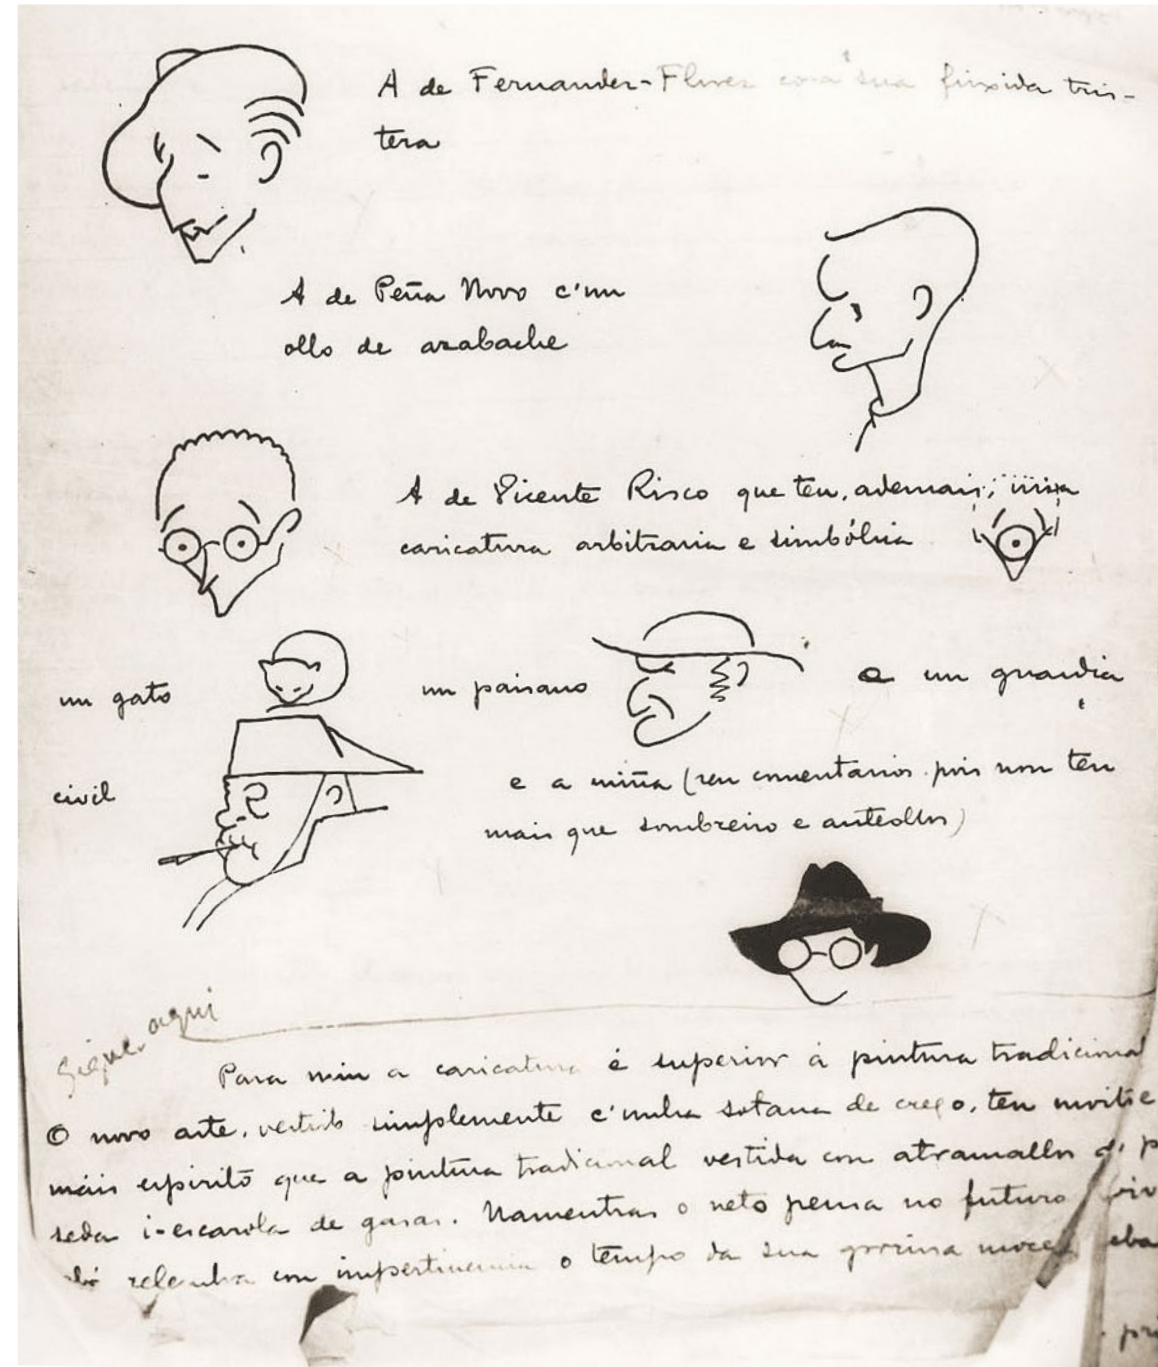 A de Fernandez-Florez con a sua finxida tris-
teza
A de Peña Novo c'un
ollo de azabache
A de Vicente Risco que ten, ademais, unha
caricatura arbitraria e simbólica
un gato
un paisano
e un guardia
civil
e a miña (sen comentarios pois non ten
mais que sombreiro e anteollos)
Sigue aquí
Para min a caricatura é superior á pintura tradicional
O novo arte, vestido simplemente c'unha sotana de crego, ten moito
mais espirito que a pintura tradicional vestida con atramallos de
seda i-escarola de gasas. Namentras o neto pensa no futuro
con impertinencia o tempo da sua